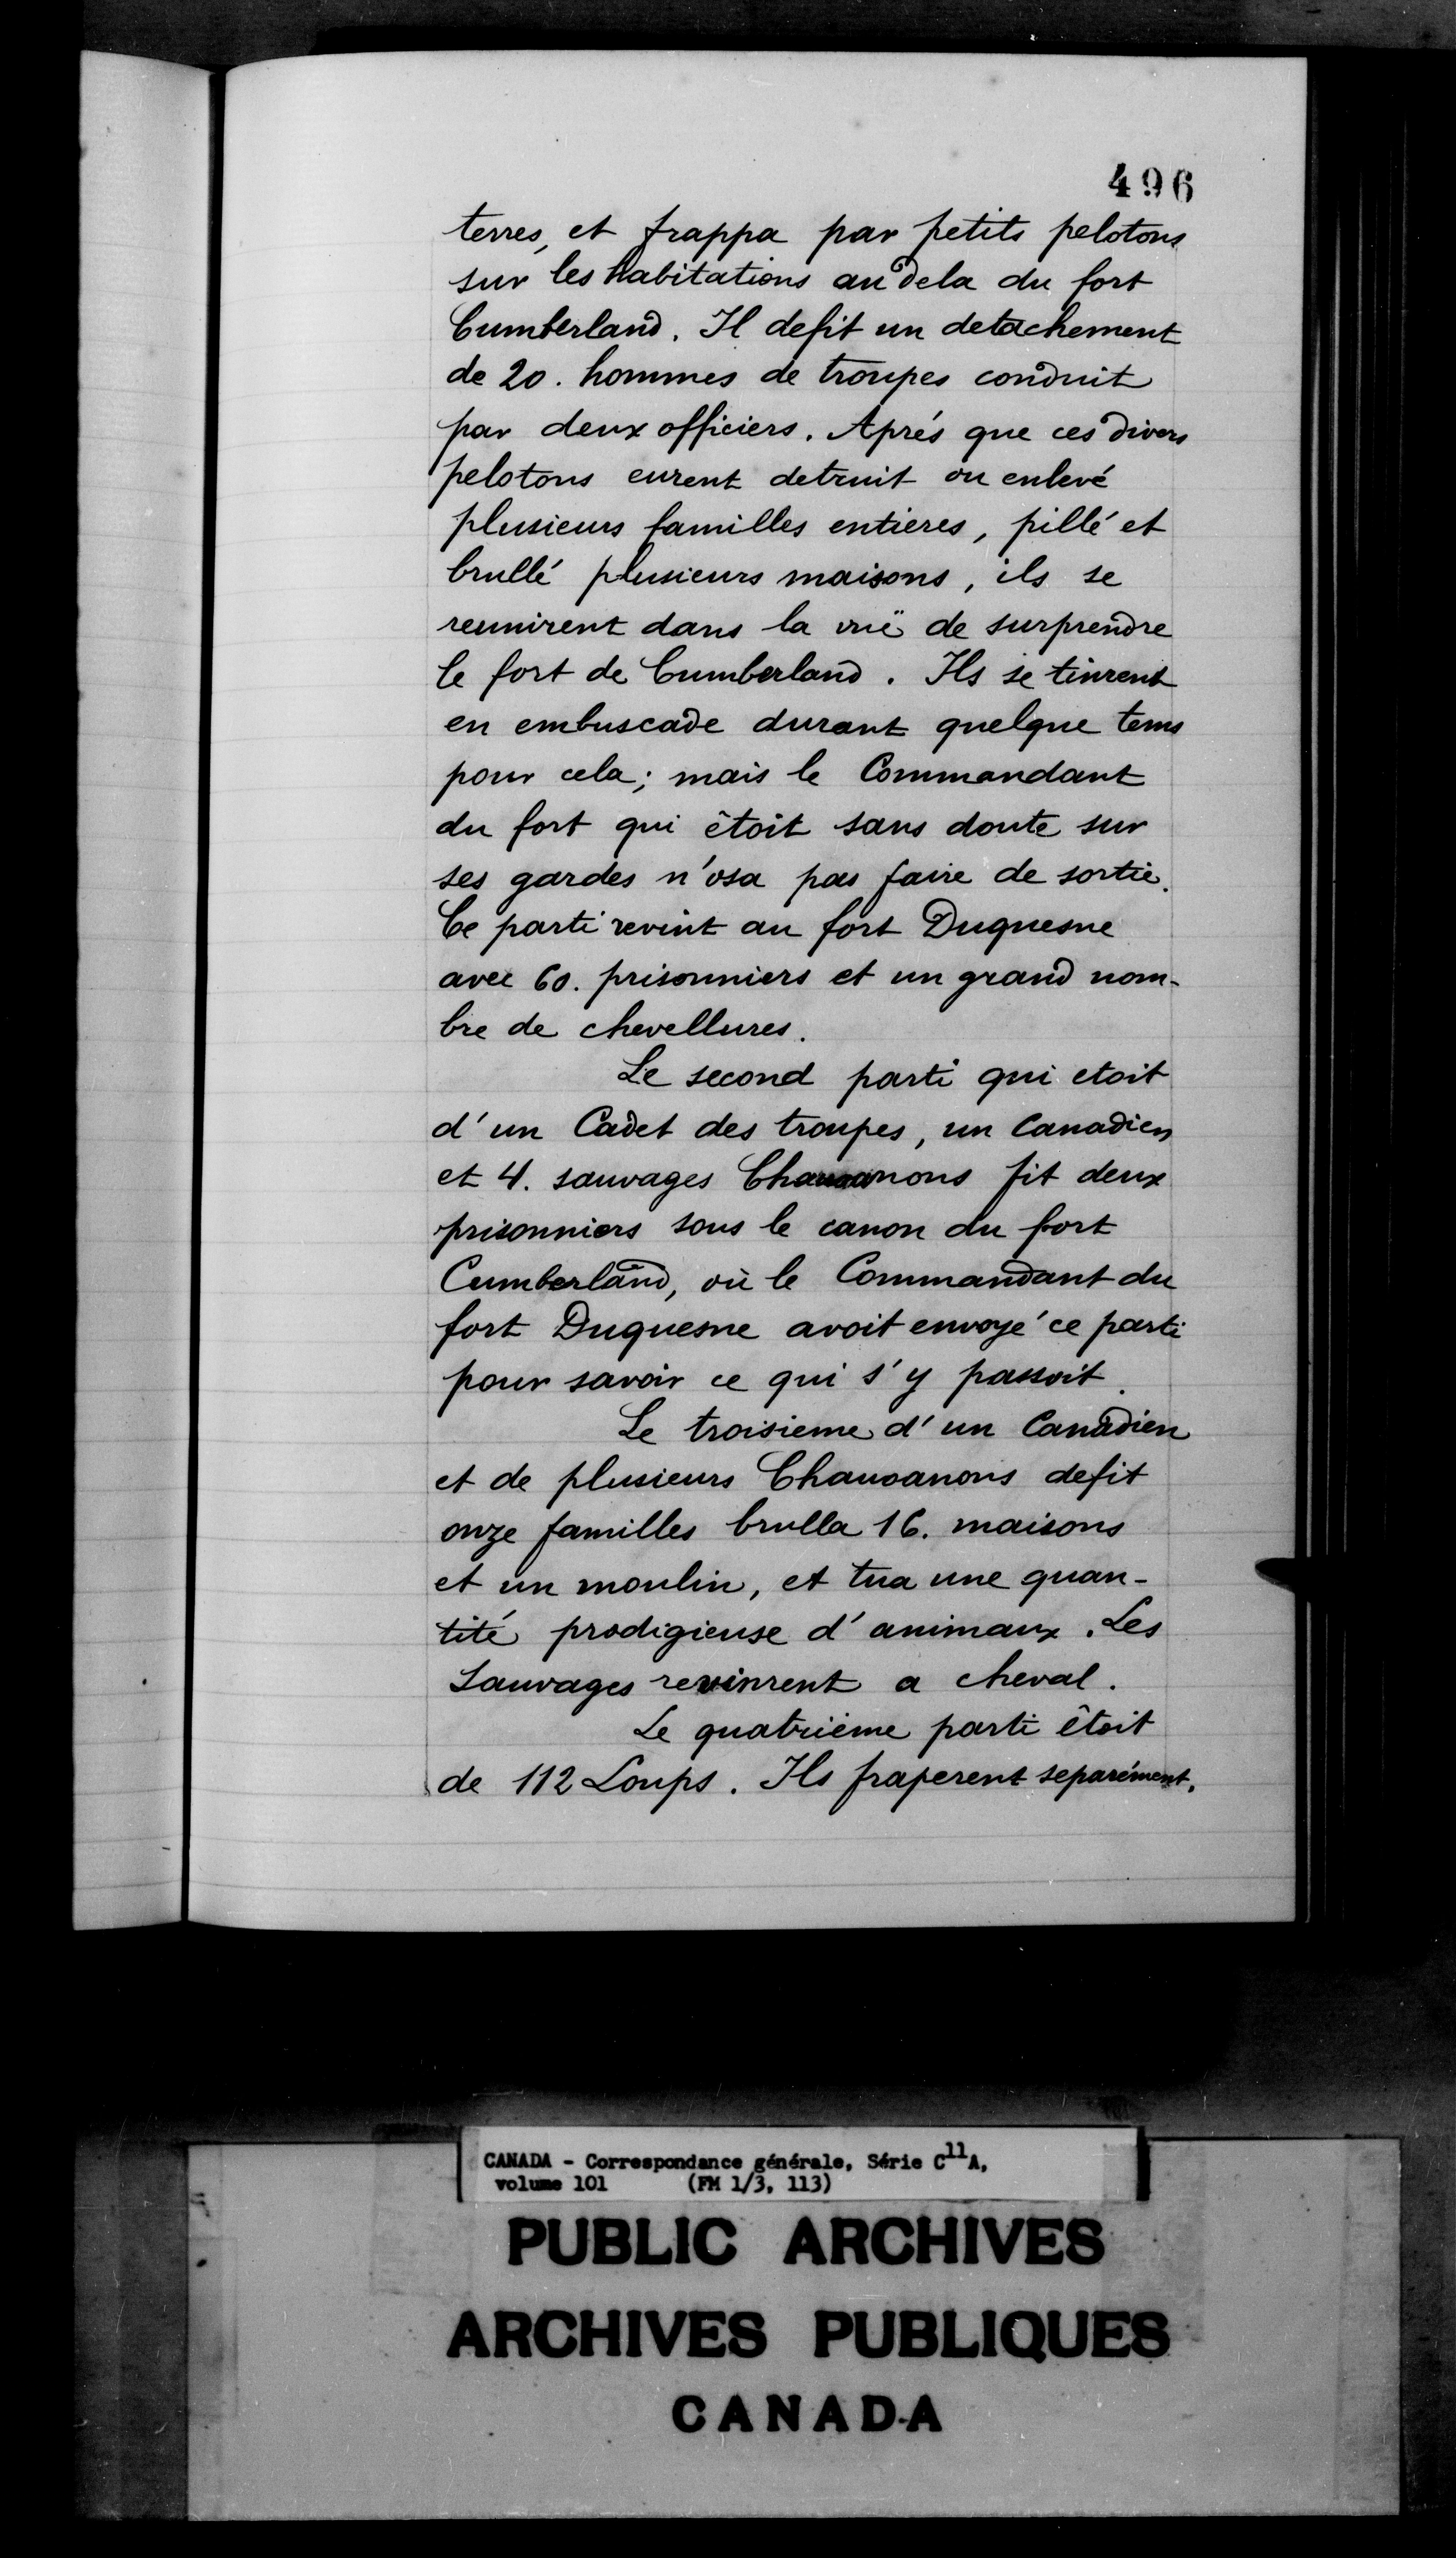 496
terres, et frappa par petits pelotons
sur les habitations au dela du fort
Cumberland. Il defit un detachement
de 20. hommes de troupes conduit
par deux officiers. Aprés que ces divers
pelotons eurent detruit ou enlevé
plusieurs familles entieres, pillé et
brullé plusieurs maisons, ils se
reunirent dans la vuë de surprendre
le fort de Cumberland. Ils se tinrent
en embuscade durant quelque tems
pour cela; mais le Commandant
du fort qui êtoit sans doute sur
ses gardes n'osa pas faire de sortie.
Ce parti revint au fort Duquesne
avec 60. prisonniers et un grand nom-
bre de chevellures.
Le second parti qui etoit
d'un Cadet des troupes, un Canadien
et 4. sauvages Chauoanons fit deux
prisonniers sous le canon du fort
Cumberland, où le Commandant du
fort Duquesne avoit envoyé ce parti
pour savoir ce qui s'y passoit.
Le troisieme d'un Canadien
et de plusieurs Chauoanons defit
onze familles brulla 16. maisons
et un moulin, et tua une quan-
tité prodigieuse d'animaux. Les
Sauvages revinrent a cheval.
Le quatrième parti êtoit
de 112 Loups. Ils fraperent separément,
CANADA - Correspondance générale, Série C11A,
volume 101 (FM 1/3, 113)
PUBLIC ARCHIVES
ARCHIVES PUBLIQUES
CANADA